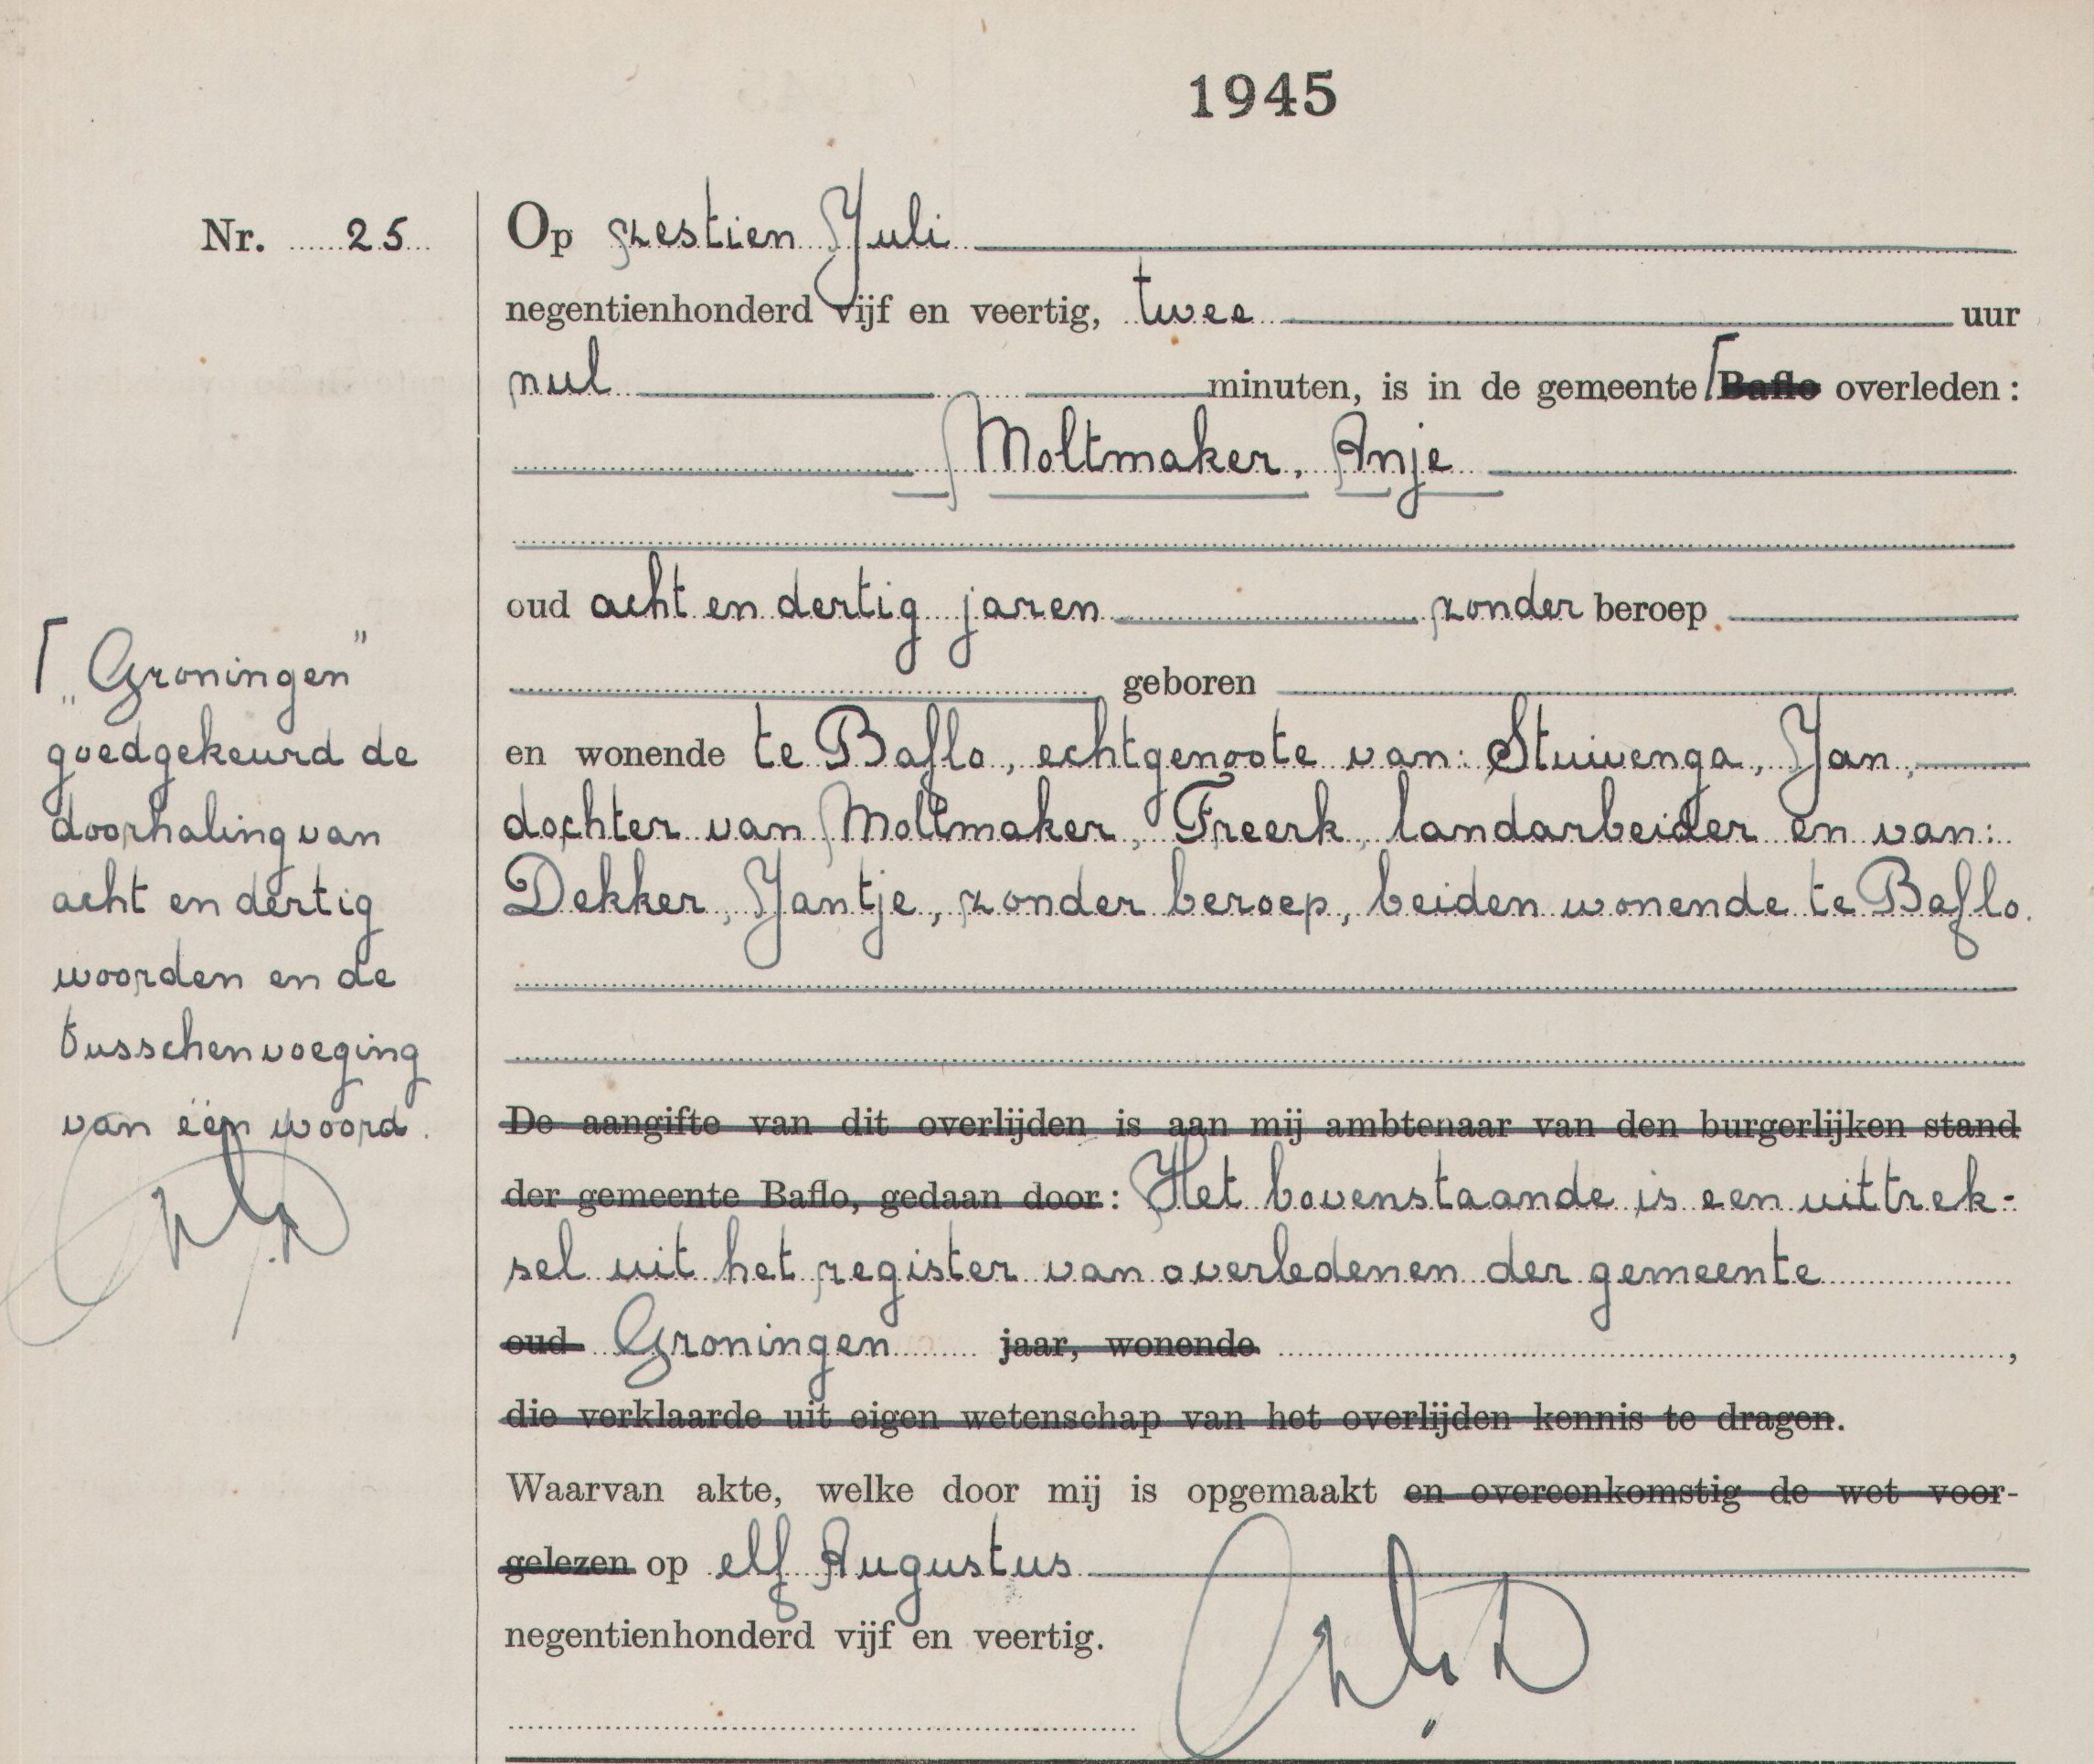 1945
Nr. 25
Op zestien Juli
negentienhonderd vijf en veertig, twee uur
nul minuten, is in de gemeente ⌈ Baflo overleden:
Moltmaker, Anje
oud acht en dertig jaren zonder beroep
geboren
en wonende te Baflo, echtgenoote van: Stuivenga, Jan,
dochter van Moltmaker, Freerk, landarbeider en van:
Dekker, Jantje, zonder beroep, beiden wonende te Baflo.
⌈ „Groningen”
goedgekeurd de
doorhaling van
acht en dertig
woorden en de
tusschenvoeging
van één woord.
De aangifte van dit overlijden is aan mij ambtenaar van den burgerlijken stand
der gemeente Baflo, gedaan door: Het bovenstaande is een uittrek-
sel uit het register van overledenen der gemeente
oud Groningen jaar, wonende ,
die verklaarde uit eigen wetenschap van het overlijden kennis te dragen.
Waarvan akte, welke door mij is opgemaakt en overeenkomstig de wet voor-
gelezen op elf Augustus
negentienhonderd vijf en veertig.